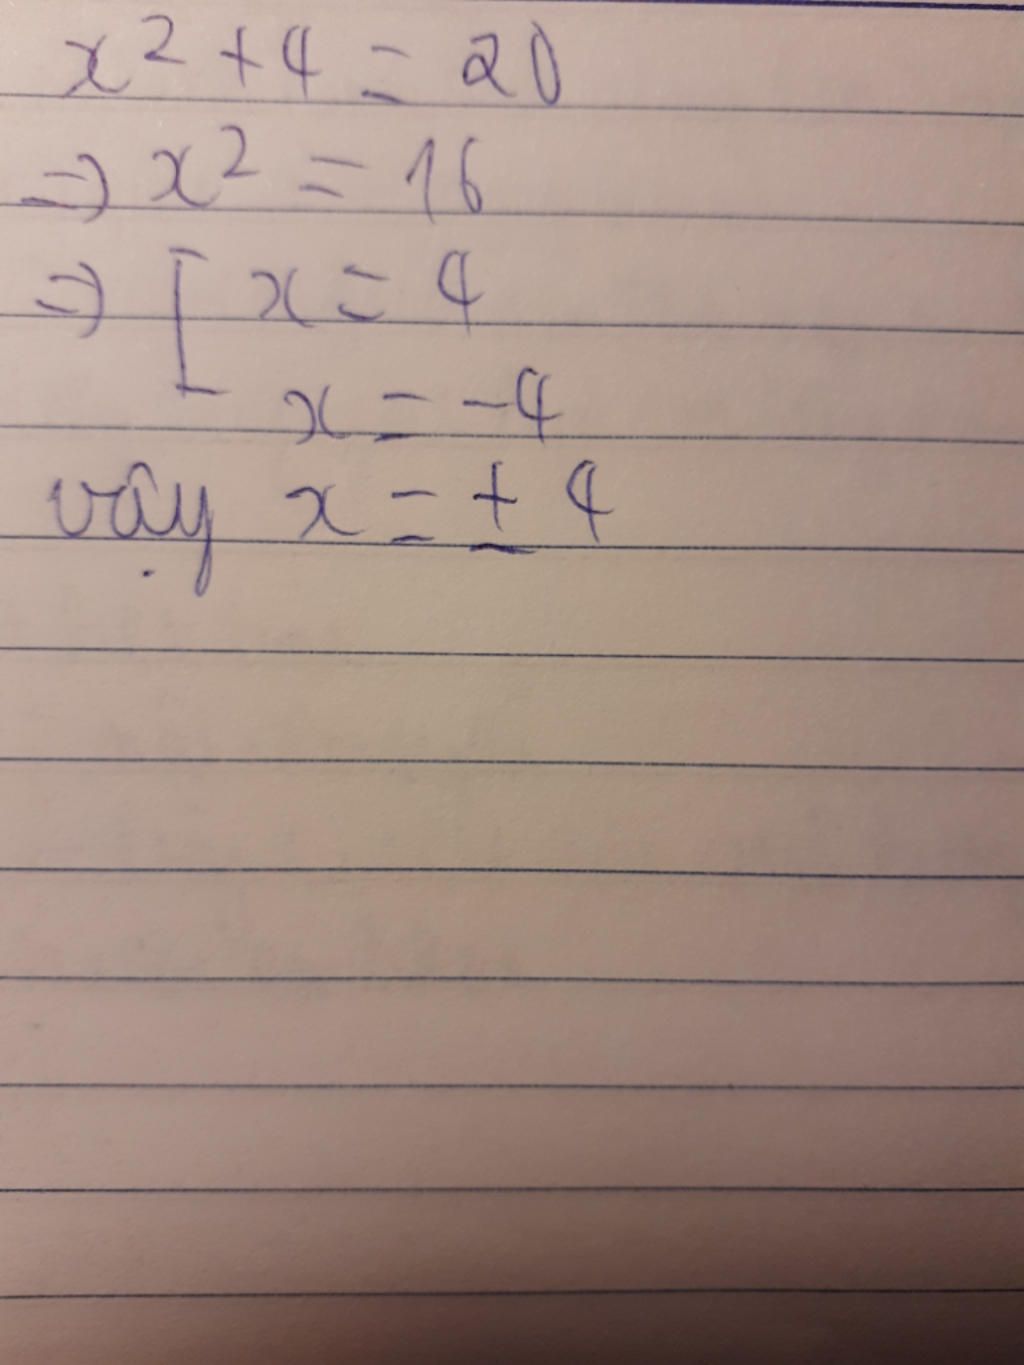 x² + 4 = 20
⇒ x² = 16
⇒ [ x = 4
x = -4
vậy x = ± 4